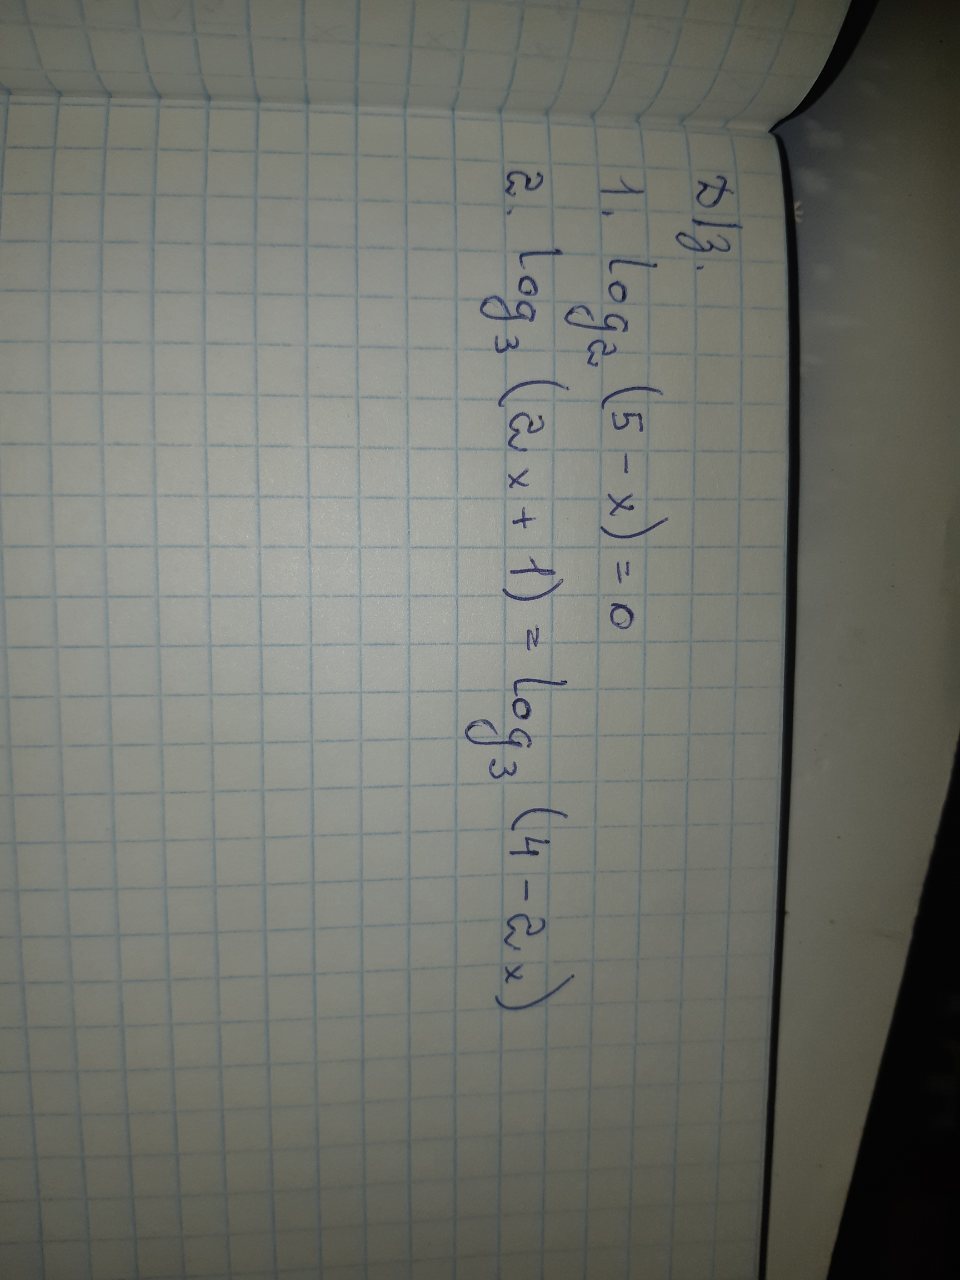 D/з.
1. log₂ (5 - x) = 0
2. log₃ (2x + 1) = log₃ (4 - 2x)